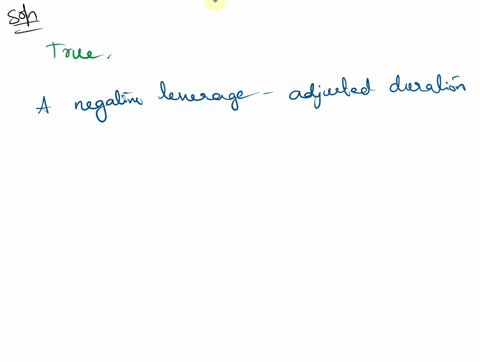 Soln
True.
A negative leverage - adjusted duration